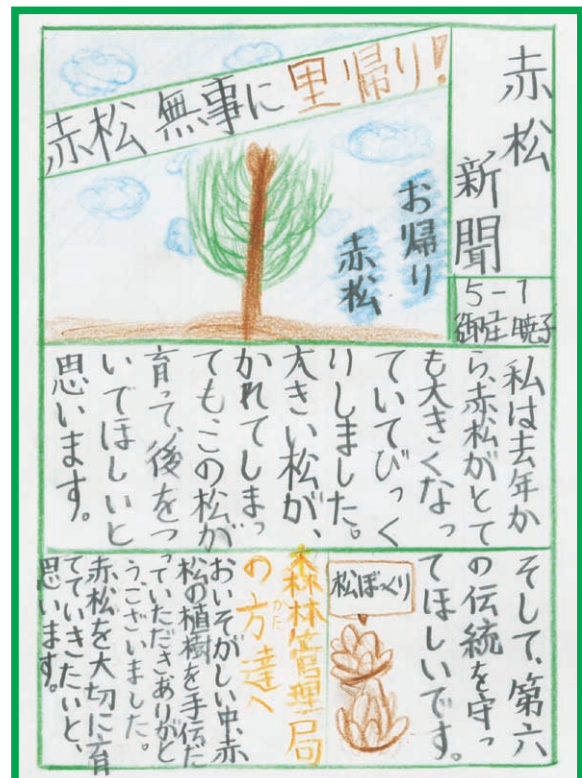 赤松
新聞
5-1
御庄 暁子
赤松 無事に 里帰り!
お帰り
赤松
私は去年か
ら、赤松がとて
も大きくなっ
ていてびっく
りしました。
大きい松が、
かれてしまっ
てもこの松が
育って、後をつ
いでほしいと
思います。
そして、第六
の伝統を守っ
てほしいです。
松ぼっくり
森林管理局
の方達へ
かた
おいそがしい中、赤
松の植樹を手伝だ
っていただきありがと
うございました。
赤松を大切に育
てていきたいと、
思います。